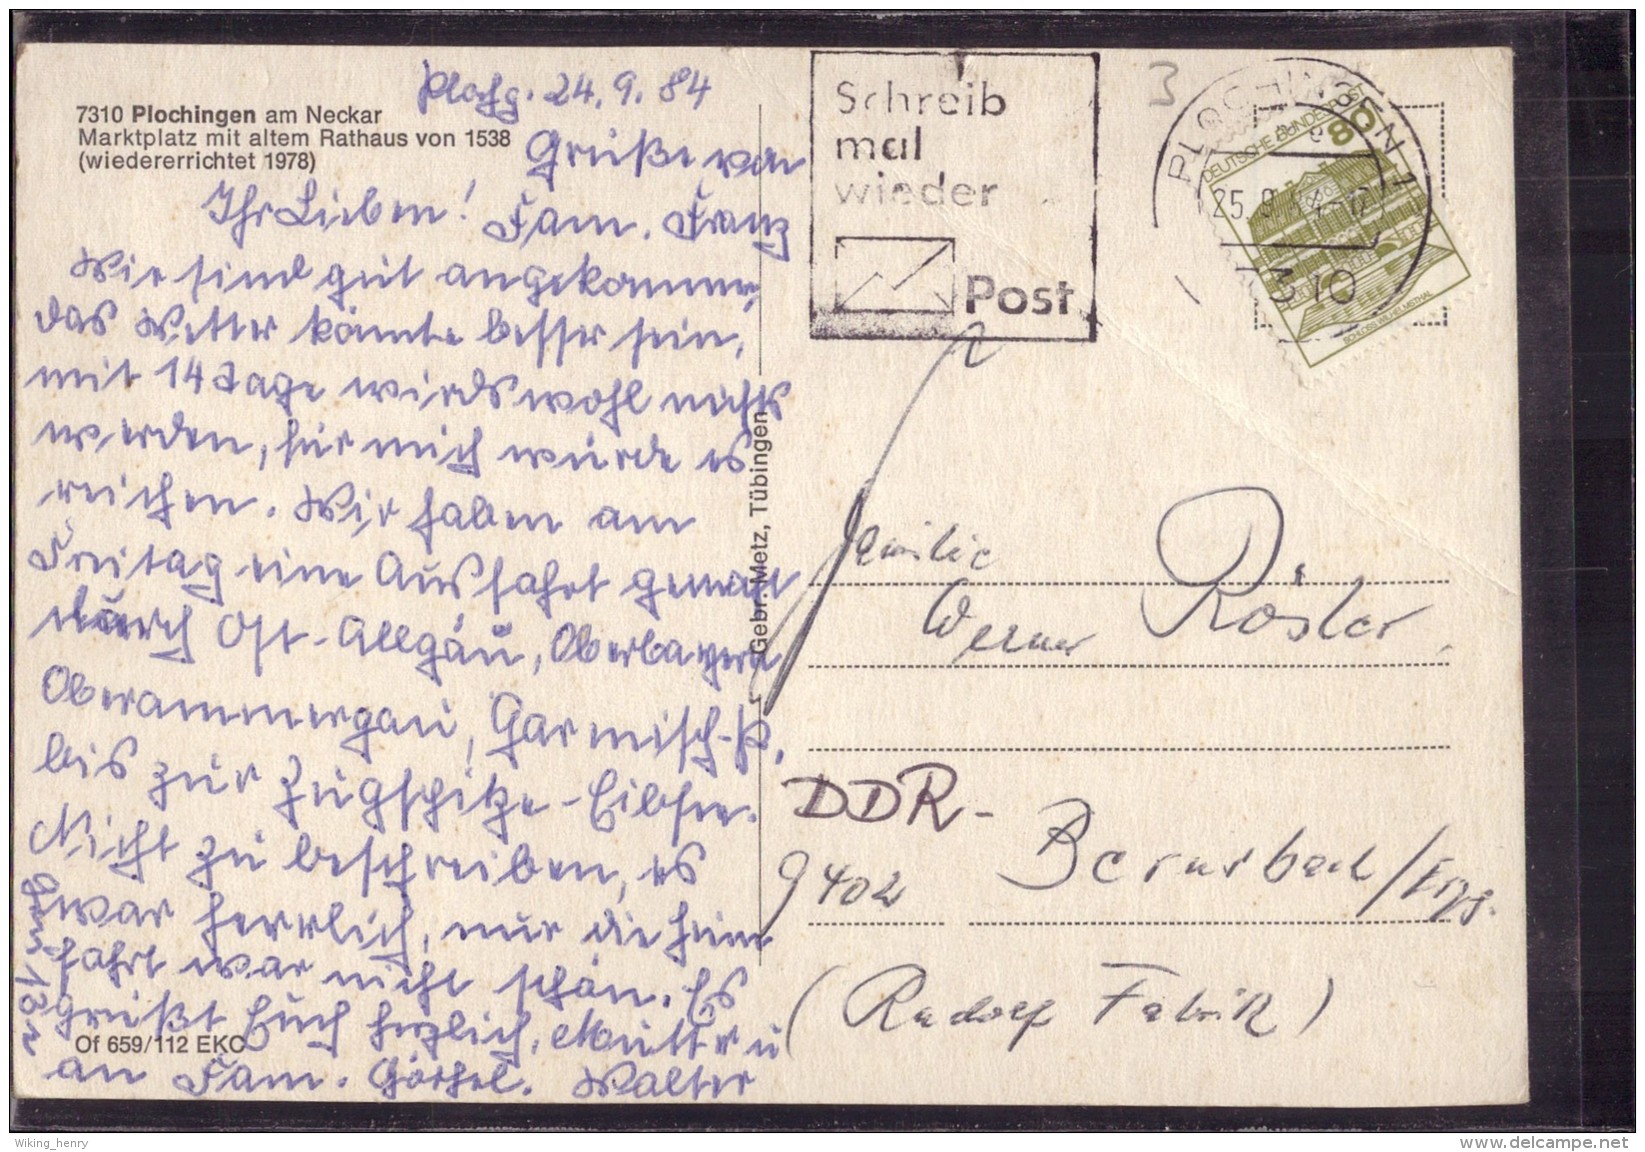 7310 Plochingen am Neckar
Marktplatz mit altem Rathaus von 1538
(wiedererrichtet 1978)
24.9.84
Grüße von
Fam. Franz
Ihr Lieben!
Wir sind gut angekommen,
das Wetter könnte besser sein,
mit 14 Tage wirds wohl nichts
werden, für mich würde es
reichen. Wir haben am
Freitag eine Ausfahrt gemacht
durch Ost-Allgäu, Oberbayern
Oberammergau, Garmisch-P.
bis zur Zugspitze-Eibsee.
Nicht zu beschreiben, es
war herrlich, nur die Heim
fahrt war nicht schön. Es
grüßt Euch herzlich, Mutter u
Walter
an Fam. Görhel.
Of 659/112 EKC
Gebr. Metz, Tübingen
Schreib
mal
wieder
Post
3
PLOCHINGEN 1
25.9.84-
7310
DEUTSCHE BUNDESPOST
80
SCHLOSS WILHELMSTHAL
Familie
Werner Rösler
DDR-
9402 Bernsbach/Erzg.
(Rudolf Fabrik)
Wiking_henry
www.delcampe.net